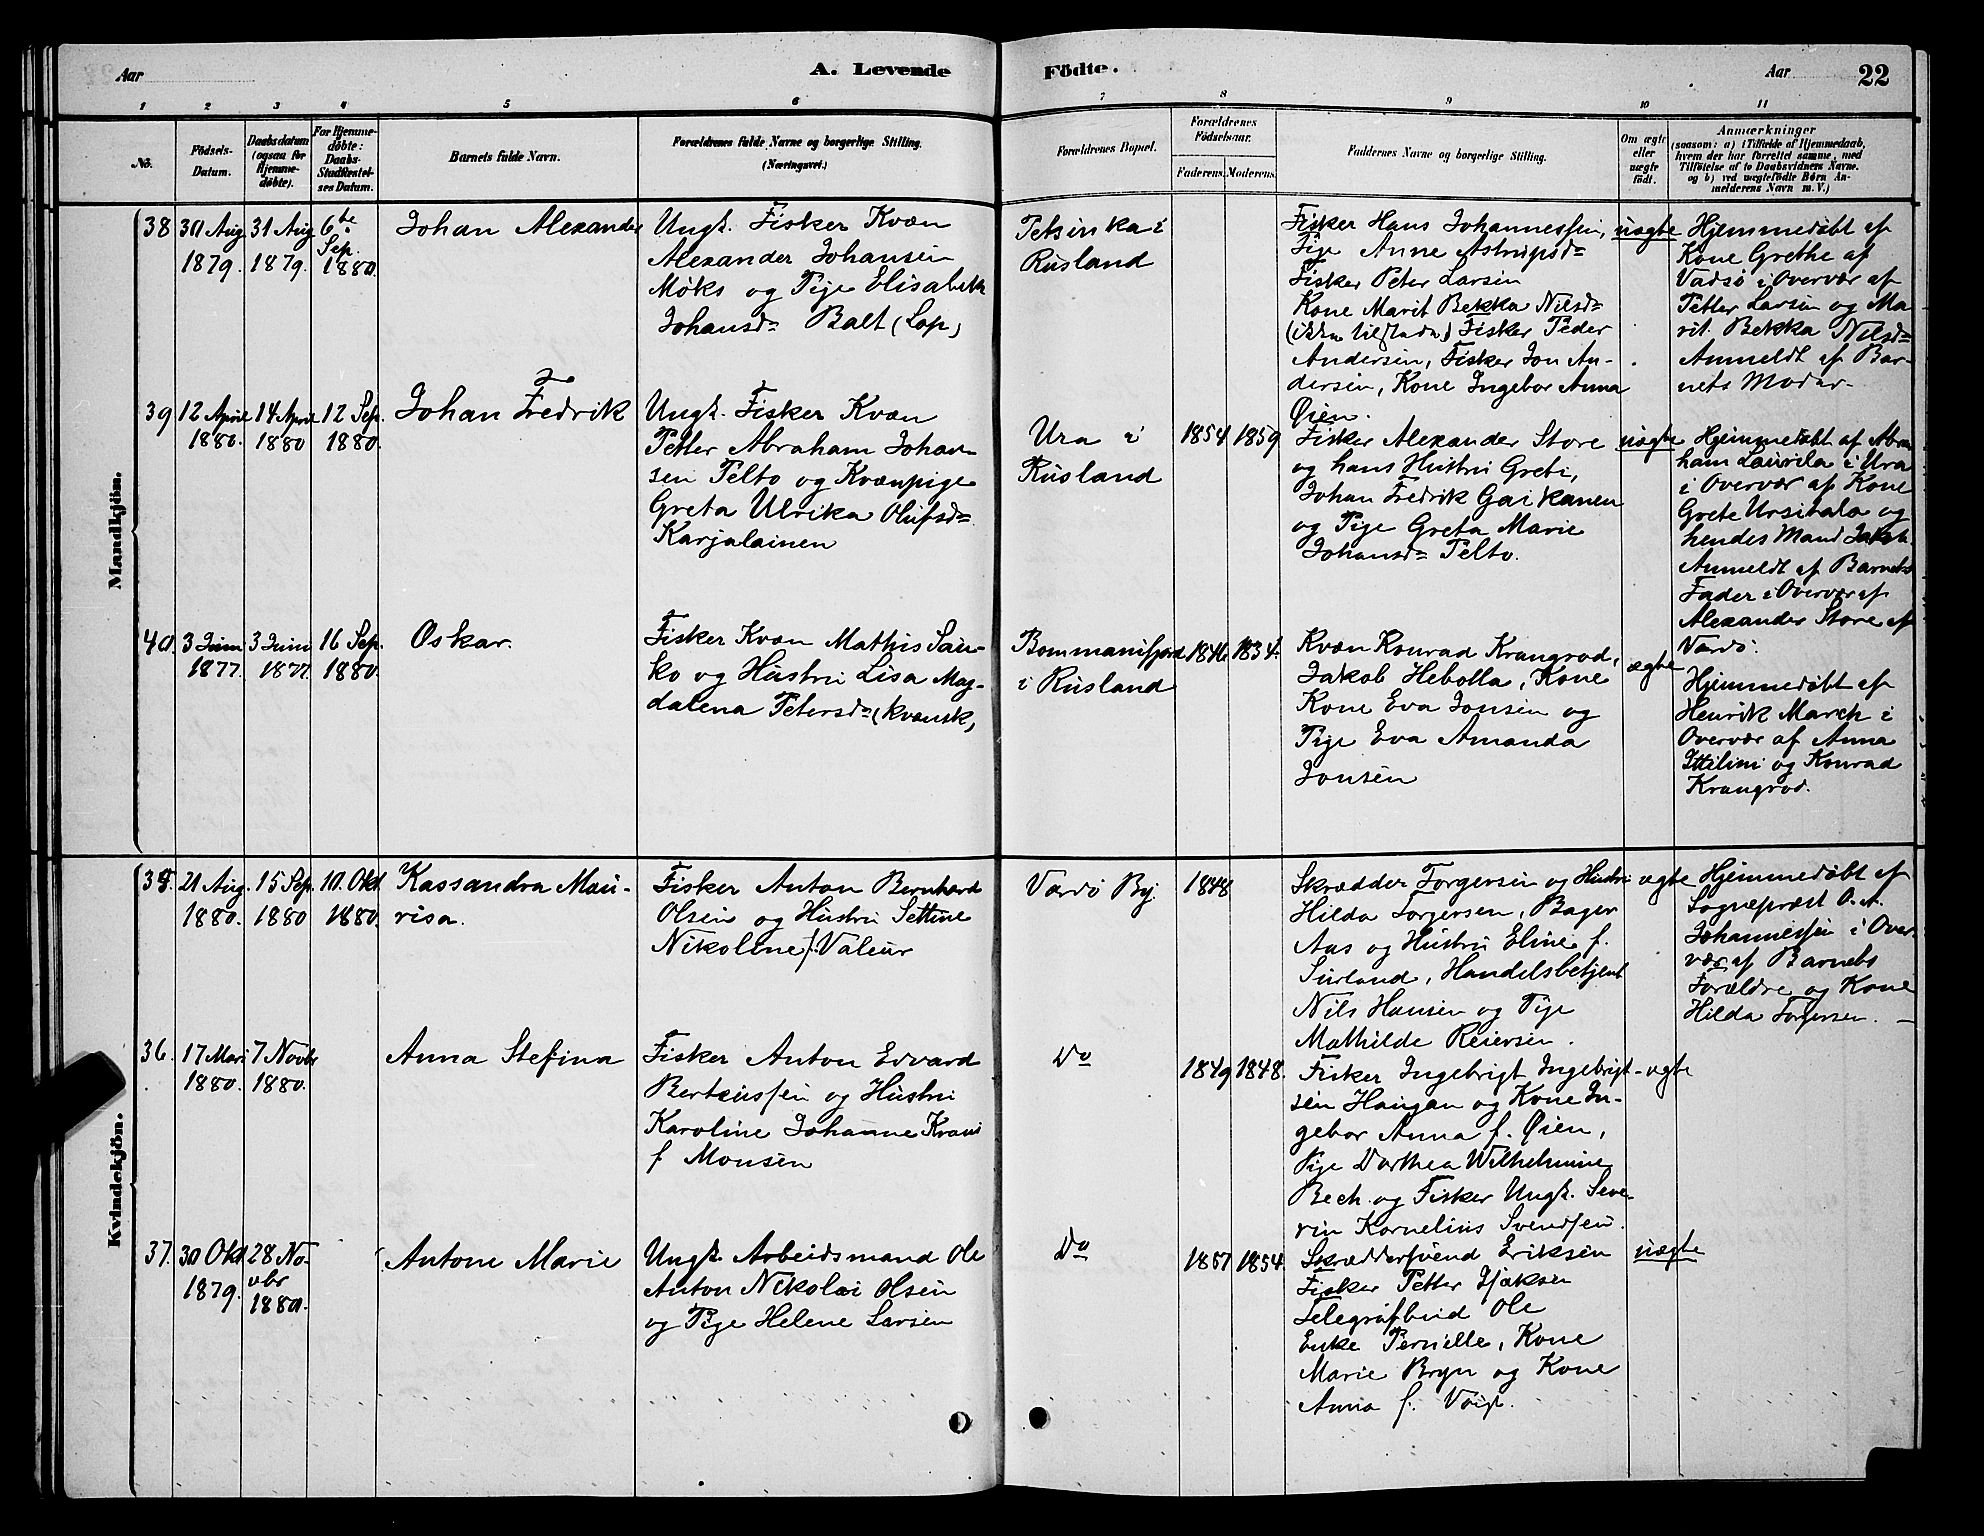 Aar
A. Levende
Födte.
Aar
22
1
2
3
4
5
6
7
8
9
10
11
No.
Födsels-
Datum.
Daabsdatum
(ogsaa for
Hjemme-
döbte).
For Hjemme-
döbte:
Daabs-
Stadfæstel-
ses Datum.
Barnets fulde Navn.
Forældrenes fulde Navne og borgerlige Stilling.
(Næringsvei.)
Forældrenes Bopæl.
Forældrenes
Födselsaar.
Faderens.
Moderens.
Faddernes Navne og borgerlige Stilling.
Om ægte
eller
uægte
födt.
Anmærkninger
(saasom: a) i Tilfælde af Hjemmedaab,
hvem der har forrettet samme, med
Tilföielse af to Daabsvidners Navne,
og b) ved uægtefödte Børn An-
melderens Navn m. V.)
Mandkjön.
38
30 Aug
1879.
31 Aug
1879.
6te
Sep.
1880.
Johan Alexander
Ungk. Fisker Kvæn
Alexander Johansen
Møks og Pige Elisabeth
Johansd. Balt (Lap)
Petsinka i
Rusland
Fisker Hans Johannessen,
Pige Anne Astrupsd.
Fisker Peter Larsen
Kone Marit Bekka Nilsd.
(ikke tilstede) Fisker Peder
Andersen, Fisker Jon An-
dersen, Kone Ingebor Anna
Øien.
uægte
Hjemmedøbt af
Kone Grethe af
Vadsø i Overvær af
Petter Larsen og Ma-
rit Bekka Nilsd.
Anmeldt af Bar-
nets Moder.
39
12 April
1880.
14 April
1880
12 Sep.
1880.
Johan Fredrik
Ungk. Fisker Kvæn
Petter Abraham Johan-
sen Pelto og Kvænpige
Greta Ulrika Olufsd.
Karjalainen
Ura i
Rusland
1854
1859
Fisker Alexander Store
og hans Hustru Grete,
Johan Fredrik Gaikanen
og Pige Greta Marie
Johansd. Pelto.
uægte
Hjemmedøbt af Abra-
ham Laurila i Ura
i Overvær af Kone
Grete Ursitalo og
hendes Mand Jakob.
Anmeldt af Barnets
Fader i Overvær af
Alexander Store af
Vardø.
40.
3 Juni
1877.
3 Juni
1877.
16 Sep.
1880.
Oskar.
Fisker Kvæn Mathis Sau-
ko og Hustru Lisa Mag-
dalena Petersd. (kvænsk)
Bommanisfjord
i Rusland
1846
1834.
Kvæn Konrad Krangrod,
Jakob Hebolla, Kone
Kone Eva Jonsen og
Pige Eva Amanda
Jonsen
ægte
Hjemmedøbt af
Henrik March i
Overvær af Anna
Ittilini og Konrad
Krangrod.
Kvindekjön.
35.
21 Aug.
1880.
15 Sep.
1880
10. Okt
1880.
Kassandra Mau-
risa.
Fisker Anton Bernhard
Olsen og Hustru Settine
Nikoline f. Valeur
Vardø By.
1848
Skrædder Torgersen og Hustru
Hilda Torgersen, Bager
Aas og Hustru Eline f.
Surland, Handelsbetjent
Nils Hansen og Pige
Mathilde Reiersen.
ægte
Hjemmedøbt af
Sogneprest O. A.
Johannessen i Over-
vær af Barnets
Forældre og Kone
Hilda Torgersen.
36.
17 Mari
1880.
7 Novbr
1880.
Anna Stefina
Fisker Anton Edvard
Berteussen og Hustru
Karoline Johanne Krane
f Monsen
Do
1849
1848.
Fisker Ingebrigt Ingebrigt-
sen Haugan og Kone In-
gebor Anna f. Øien,
Pige Dorthea Wilhelmine
Bech og Fisker Ungk. Seve-
rin Kornelius Svendsen.
ægte
37.
30 Okt
1879.
28 No-
vbr
1880.
Antone Marie
Ungk. Arbeidsmand Ole
Anton Nikolai Olsen
og Pige Helene Larsen
Do
1857
1854.
Skræddersvend Eriksen
Fisker Petter Isaksen
Telegrafbud Ole
Enke Pernille, Kone
Marie Bryn og Kone
Anna f. Voigt.
uægte